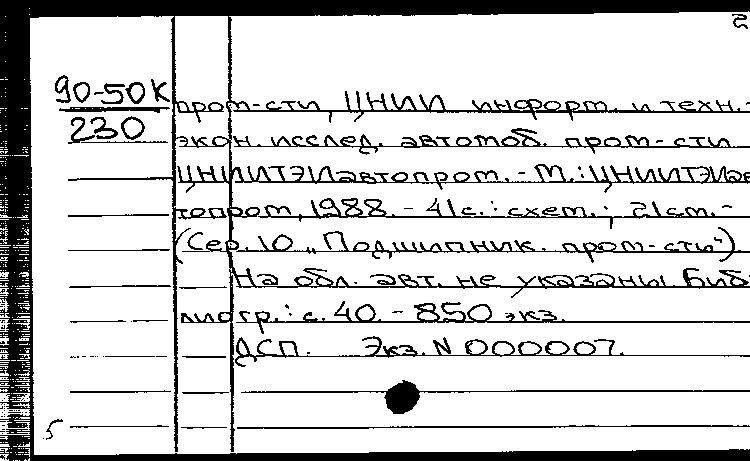 2
90-50К
230
пром-сти, ЦНИИ информ. и техн.-
экон. исслед. автомоб. пром-сти
ЦНИИТЭИавтопром. - М.: ЦНИИТЭИав
топром, 1988. - 41с.: схем.; 21см. -
(Сер. 10 „Подшипник. пром-сть")
На обл. авт. не указаны. Биб
лиогр.: с. 40. - 850 экз.
ДСП. Экз. N 000007.
5